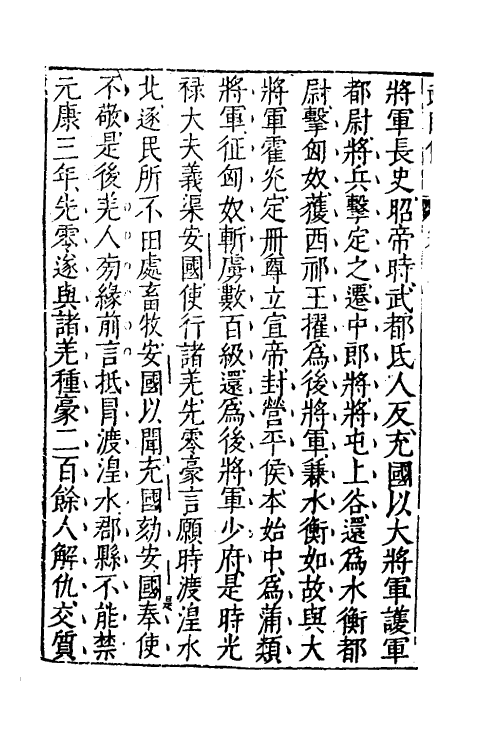 將軍長史昭帝時武都氐人反充國以大將軍護軍
都尉將兵擊定之遷中郎將將屯上谷還爲水衡都
尉擊匈奴獲西祁王擢爲後將軍兼水衡如故與大
將軍霍光定冊尊立宣帝封營平侯本始中爲蒲類
將軍征匈奴斬虜數百級還爲後將軍少府是時光
祿大夫義渠安國使行諸羌先零豪言願時渡湟水
北逐民所不田處畜牧安國以聞充國劾安國奉使
不敬是後羌人旁緣前言抵冒渡湟水郡縣不能禁
元康三年先零遂與諸羌種豪二百餘人解仇交質